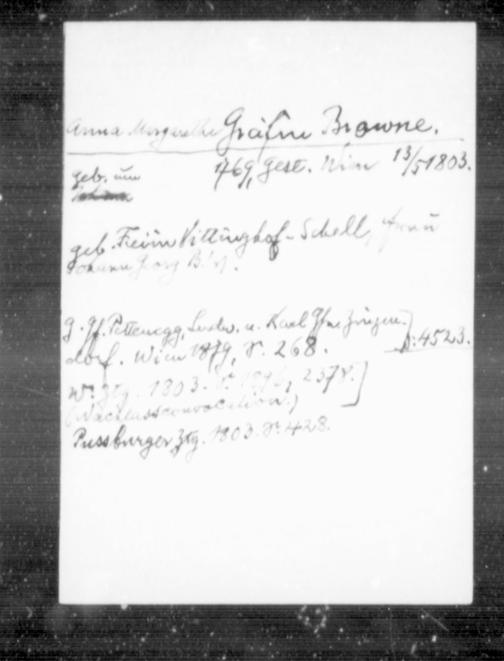 Anna Margarethe Gräfin Browne.
geb. um 1769, gest. Wien 13/5 1803.
geb. Freiin Vittinghof-Schell, Frau
Johann Georg B.'s.
G. Gf. Pettenegg, Ludw. u. Karl Gfen Zinzen-
dorf. Wien 1879, S. 268.
S. 4523.
W. Ztg. 1803. S. 2378.]
(Nachlassconvocation.)
Pressburger Ztg. 1803. S. 428.